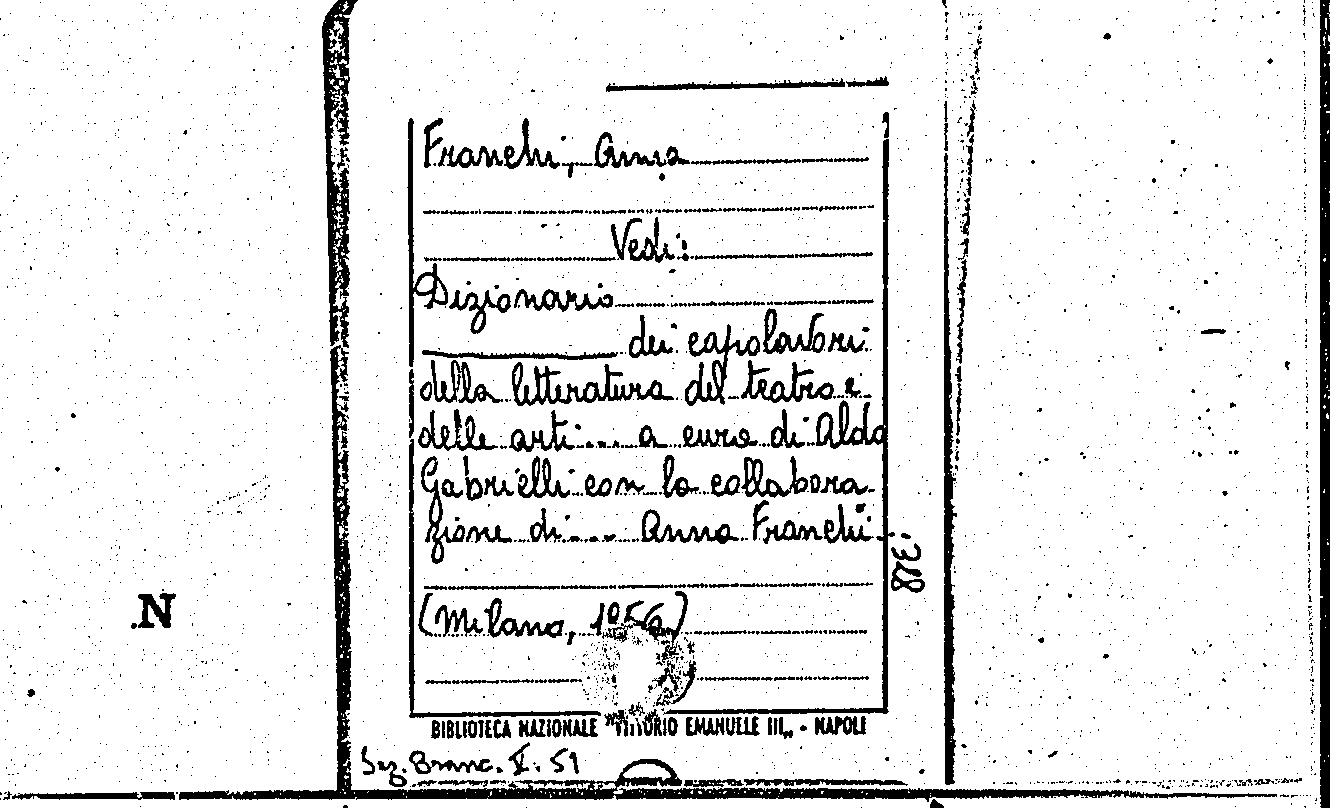 Franchi, Anna
Vedi:
Dizionario
dei capolavori
della letteratura del teatro e
delle arti... a cura di Aldo
Gabrielli con la collabora
zione di... Anna Franchi.
(Milano, 1956)
BIBLIOTECA NAZIONALE "VITTORIO EMANUELE III„ - NAPOLI
Sez. Branc. X. 51
N